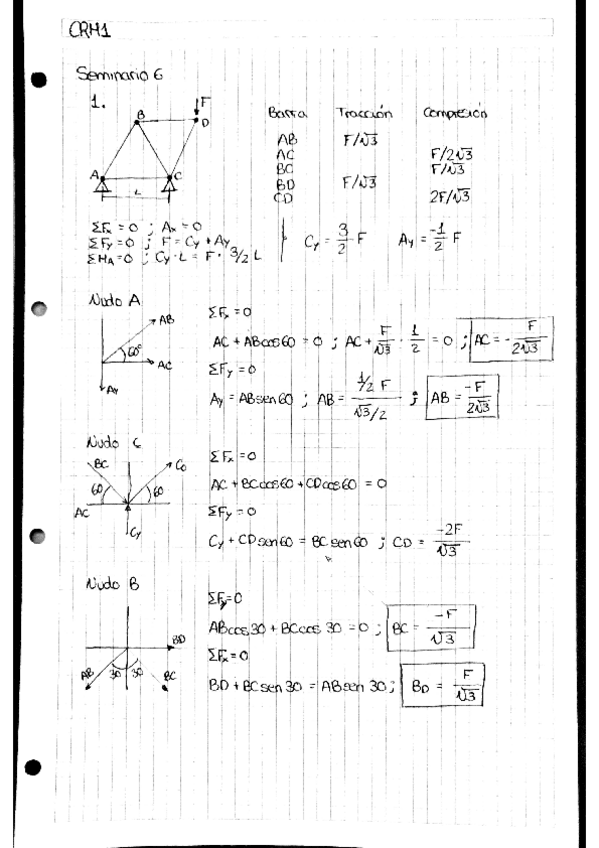 CRM1
Seminario 6
1.
F
B
D
A
C
L
Barra Tracción Compresión
AB F/√3
AC F/2√3
BC F/√3
BD F/√3
CD 2F/√3
ΣFx = 0 ; Ax = 0
ΣFy = 0 ; F = Cy + Ay
ΣMA = 0 ; Cy · L = F · 3/2 L
Cy = 3/2 F Ay = -1/2 F
Nudo A
AB
60°
AC
Ay
ΣFx = 0
AC + ABcos60 = 0 ; AC + F/√3 · 1/2 = 0 ; AC = - F/2√3
ΣFy = 0
Ay = ABsen60 ; AB = 1/2 F / √3/2 ; AB = -F/2√3
Nudo C
BC
CD
60
60
AC
Cy
ΣFx = 0
AC + BCcos60 + CDcos60 = 0
ΣFy = 0
Cy + CDsen60 = BCsen60 ; CD = -2F/√3
Nudo B
BD
AB
30
30
BC
ΣFy = 0
ABcos30 + BCcos30 = 0 ; BC = -F/√3
ΣFx = 0
BD + BCsen30 = ABsen30 ; BD = F/√3